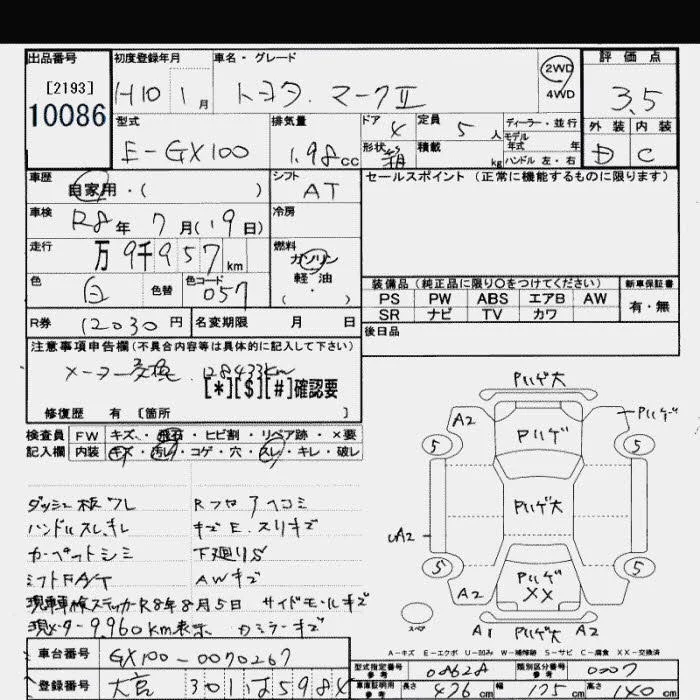 出品番号
[2193]
10086
初度登録年月
H10 1月
車名・グレード
トヨタ.マークⅡ
2WD
4WD
評価点
3.5
外装 内装
D C
型式
E-GX100
排気量
1.98cc
ドア 4
形状
定員 5人
積載 kg
ディーラー・並行
モデル
年式 年
ハンドル 左・右
車歴
自家用・( )
シフト
AT
セールスポイント(正常に機能するものに限ります)
車検
R8年 7月(19日)
冷房
走行
万9千957km
燃料
ガソリン
軽・油
( ・ )
色
白
色替
色コード
057
装備品(純正品に限り○をつけてください)
PS PW ABS エアB AW
SR ナビ TV カワ
新車保証書
有・無
R券 12030円
名変期限 月 日
後日品
注意事項申告欄(不具合内容等は具体的に記入して下さい)
メーター交換 128433km
[*][$][#]確認要
修復歴 有 [箇所 ]
検査員 FW キズ・飛石・ヒビ割・リペア跡・×要
記入欄 内装 キズ・汚レ・コゲ・穴・スレ・キレ・破レ
ダッシュ板ワレ
ハンドルスレ、キレ
カーペットシミ
シフトFA/T
現車車検ステッカーR8年8月5日
現メーター9,960km表示
Rフロアヘコミ
キズE.スリキズ
下廻りS
AWキズ
サイドモールキズ
カミラーキズ
Pハゲ大
A2
Pハゲ
Pハゲ
5
5
Pハゲ大
A2
5
5
Pハゲ
XX
A2
A2
スペア
A1
Pハゲ大
A2
A-キズ E-エクボ U-凹み W-補修跡 S-サビ C-腐食 XX-交換済
車台番号 GX100-0070267
登録番号 大宮 301 は 5984
型式指定番号
参考
08628
類別区分番号
参考
0007
車庫証明用
参考
長さ 476cm
幅 175cm
高さ 140cm